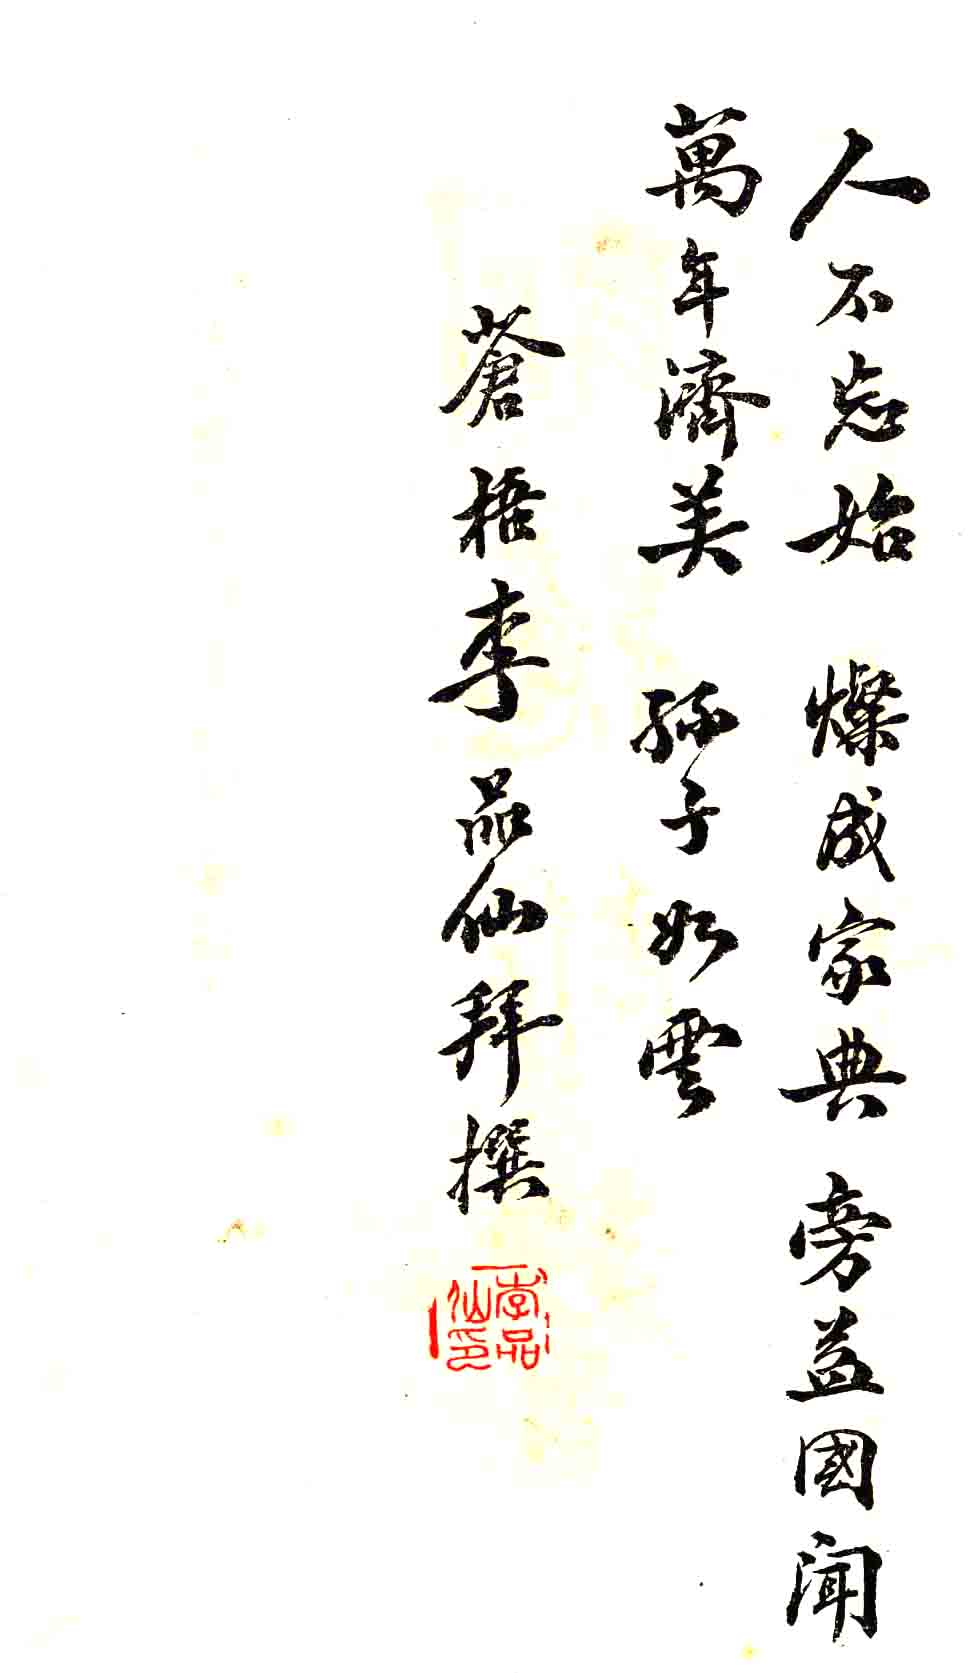 人不忘始 燦成家典 旁益國聞
萬年濟美 孫子如雲
蒼梧李品仙拜撰
李品仙印